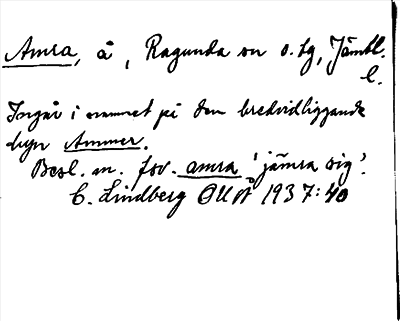 Amra, å, Ragunda sn o. tg, Jämtl.
l.
Ingår i namnet på den bredvidliggande
byn Ammer.
Besl. m. fsv. amra 'jämra sig'.
C. Lindberg OUÅ 1937: 40